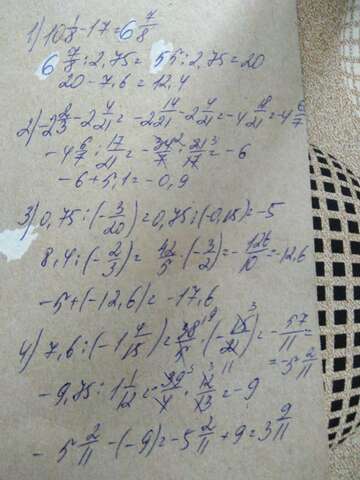 1) 10 1/8 - 17 = 6 7/8
6 7/8 : 2,75 = 55 : 2,75 = 20
20 - 7,6 = 12,4
2) -2 2/3 - 2 4/21 = -2 14/21 - 2 4/21 = -4 18/21 = -4 6/7
-4 6/7 : 17/21 = -34²/7 · 21³/17 = -6
-6 + 5,1 = -0,9
3) 0,75 : (-3/20) = 0,75 : (-0,15) = -5
8,4 : (-2/3) = 42/5 · (-3/2) = -126/10 = -12,6
-5 + (-12,6) = -17,6
4) 7,6 : (-1 7/15) = 38/5 · (-15/ ) = -57/11 =
= -5 2/11
-9,75 : 1 1/12 = -39³/4 · 12³/13 = -9
-5 2/11 - (-9) = -5 2/11 + 9 = 3 9/11